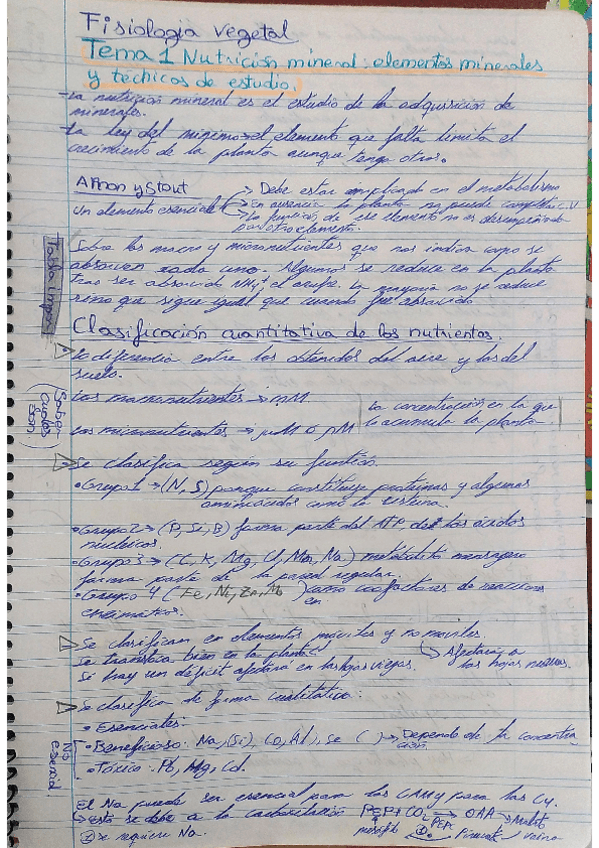 Fisiologia vegetal
Tema 1 Nutrición mineral: elementos minerales
y técnicas de estudio.
-La nutrición mineral es el estudio de la adquisición de
minerales.
-La ley del mínimo → el elemento que falta limita el
crecimiento de la planta aunque tenga otros.
Arnon y Stout
→ Debe estar implicado en el metabolismo
Un elemento esencial → En ausencia la planta no puede completar C.V
→ La función de ese elemento no es desempeñada
por otro elemento.
Tabla
Sobre los macro y micronutrientes que nos indica como se
absorven cada uno. Algunos se reduce en la planta
tras ser absorvido. La mayoria no se reduce
sino que sigue igual que cuando fue absorvido.
Clasificación cuantitativa de los nutrientes.
Se diferencia entre los obtenidos del aire y los del
suelo.
(Saber cuales son)
Los macronutrientes → mM
Los micronutrientes → μM o pM
La concentración en la que
la acumula la planta
Se clasifica según su función.
• Grupo 1 → (N, S) porque constituye proteinas y algunos
aminoácidos como la cisteina.
• Grupo 2 → (P, Si, B) forma parte del ATP de los ácidos
nucleicos.
• Grupo 3 → (C, K, Mg, Cl, Mn, Na) metabolito mensajero
forma parte de la pared
• Grupo 4 (Fe, Ni, Zn, Mo) como cofactores de reacciones
en
enzimáticas.
Se clasifican en elementos móviles y no móviles
Se transloca bien en la planta
→ Afectará a
las hojas nuevas.
Si hay un déficit afectará en las hojas viejas.
Se clasifica de forma cualitativa:
• Esenciales:
No esencial
• Beneficioso: Na, (Si), Co, Al, Se ( ) → Depende de la concentra
ción
• Tóxico: Pb, Hg, Cd.
El Na puede ser esencial para las CAM y para las C4.
→ Esto se debe a la carboxilación PEP + CO2 → OAA → Malato
PEPc
mesófilo
Piruvato / vaina
① se requiere Na.